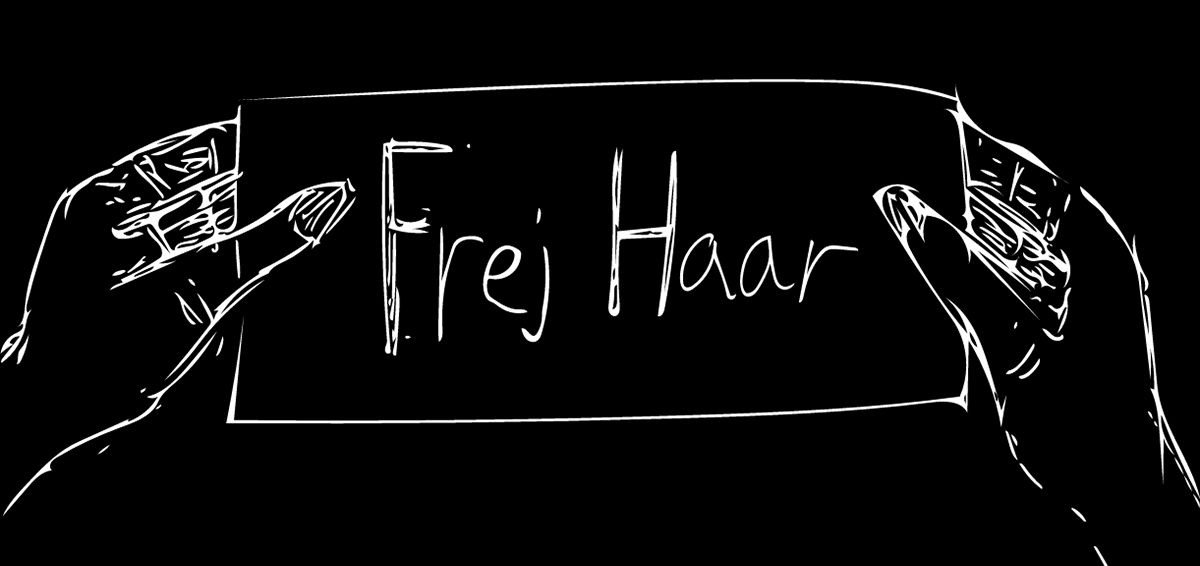 Frej Haar